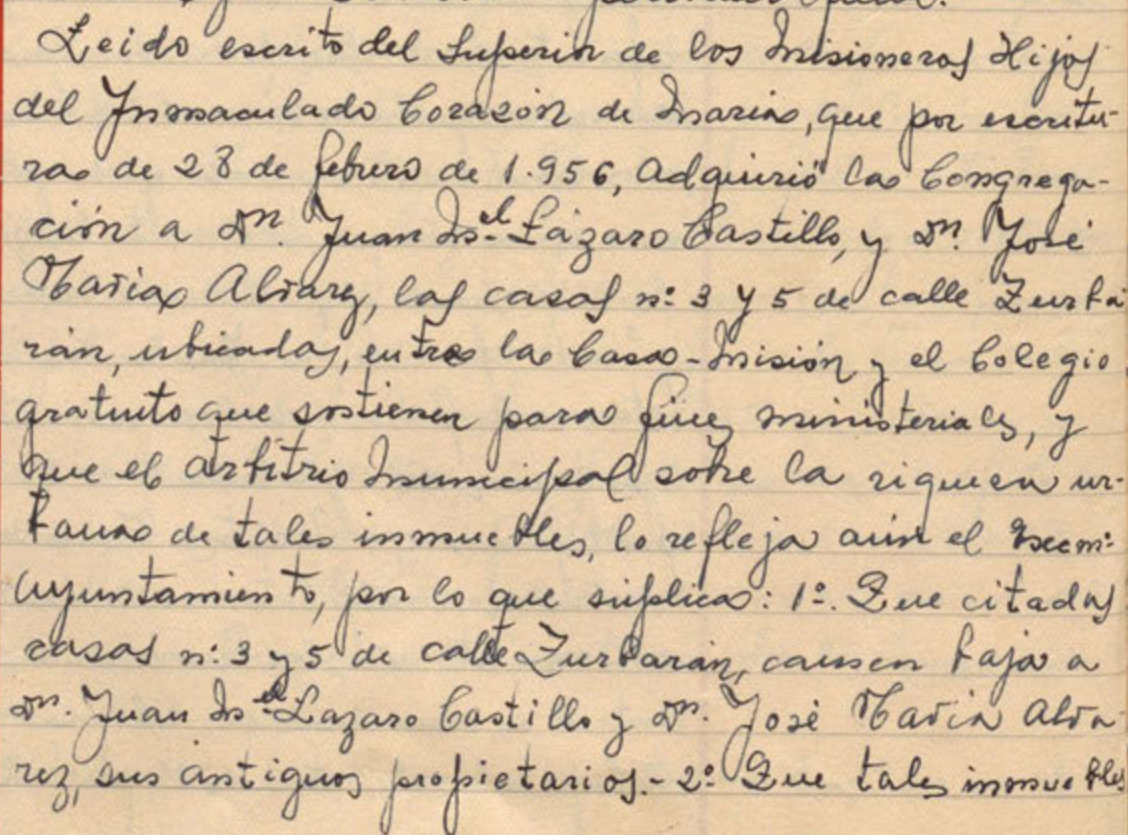 Leido escrito del Superior de los Misioneros Hijos
del Inmaculado Corazón de Maria, que por escritu-
ra de 28 de febrero de 1.956, adquirió la Congrega-
ción a Dn. Juan Ml. Lázaro Castillo, y Dn. José
Maria Alvarez, las casas nº 3 y 5 de calle Zurba
rán, ubicadas, entre la Casa-Misión y el Colegio
gratuito que sostienen para fines ministeriales, y
que el arbitrio Municipal sobre la riqueza ur-
bana de tales inmuebles, lo refleja aún el Excmº
Ayuntamiento, por lo que suplica: 1º. Que citadas
casas nº 3 y 5 de calle Zurbarán, causen baja a
Dn. Juan Ml. Lazaro Castillo y Dn. José Maria Alva-
rez, sus antiguos propietarios.- 2º Que tales inmuebles